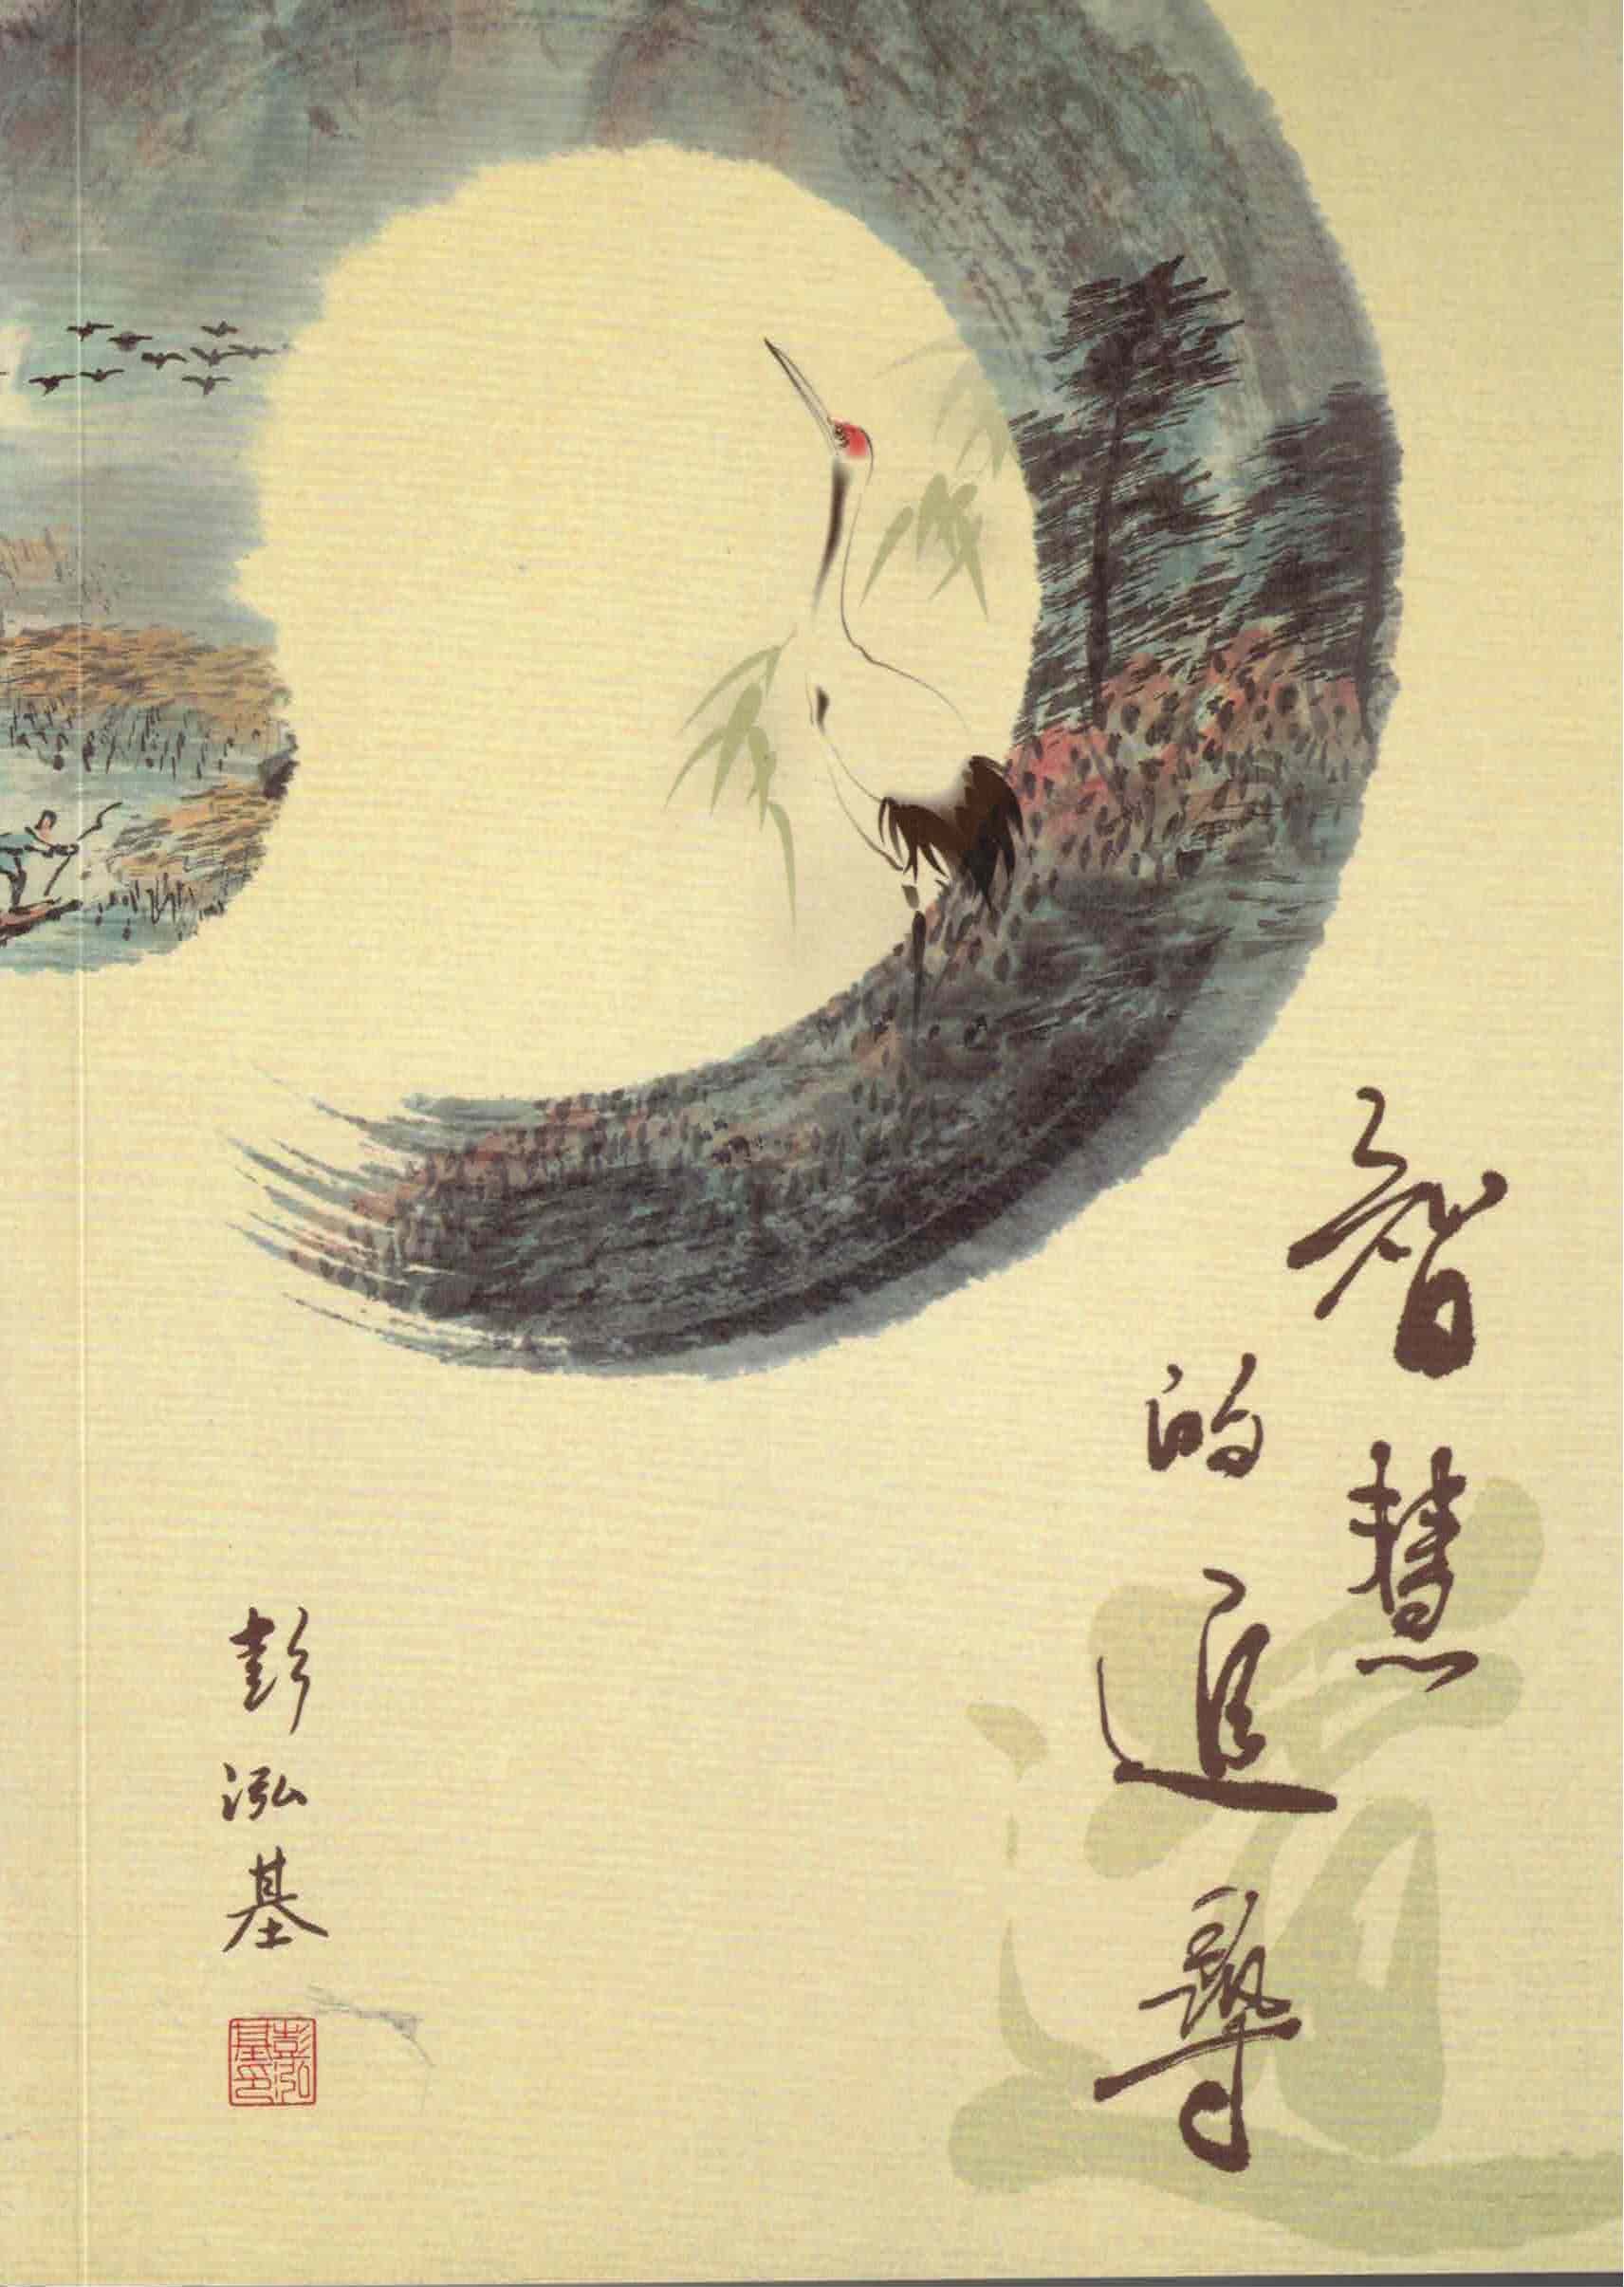 智慧
的追尋
道
彭泓基
彭泓
基印